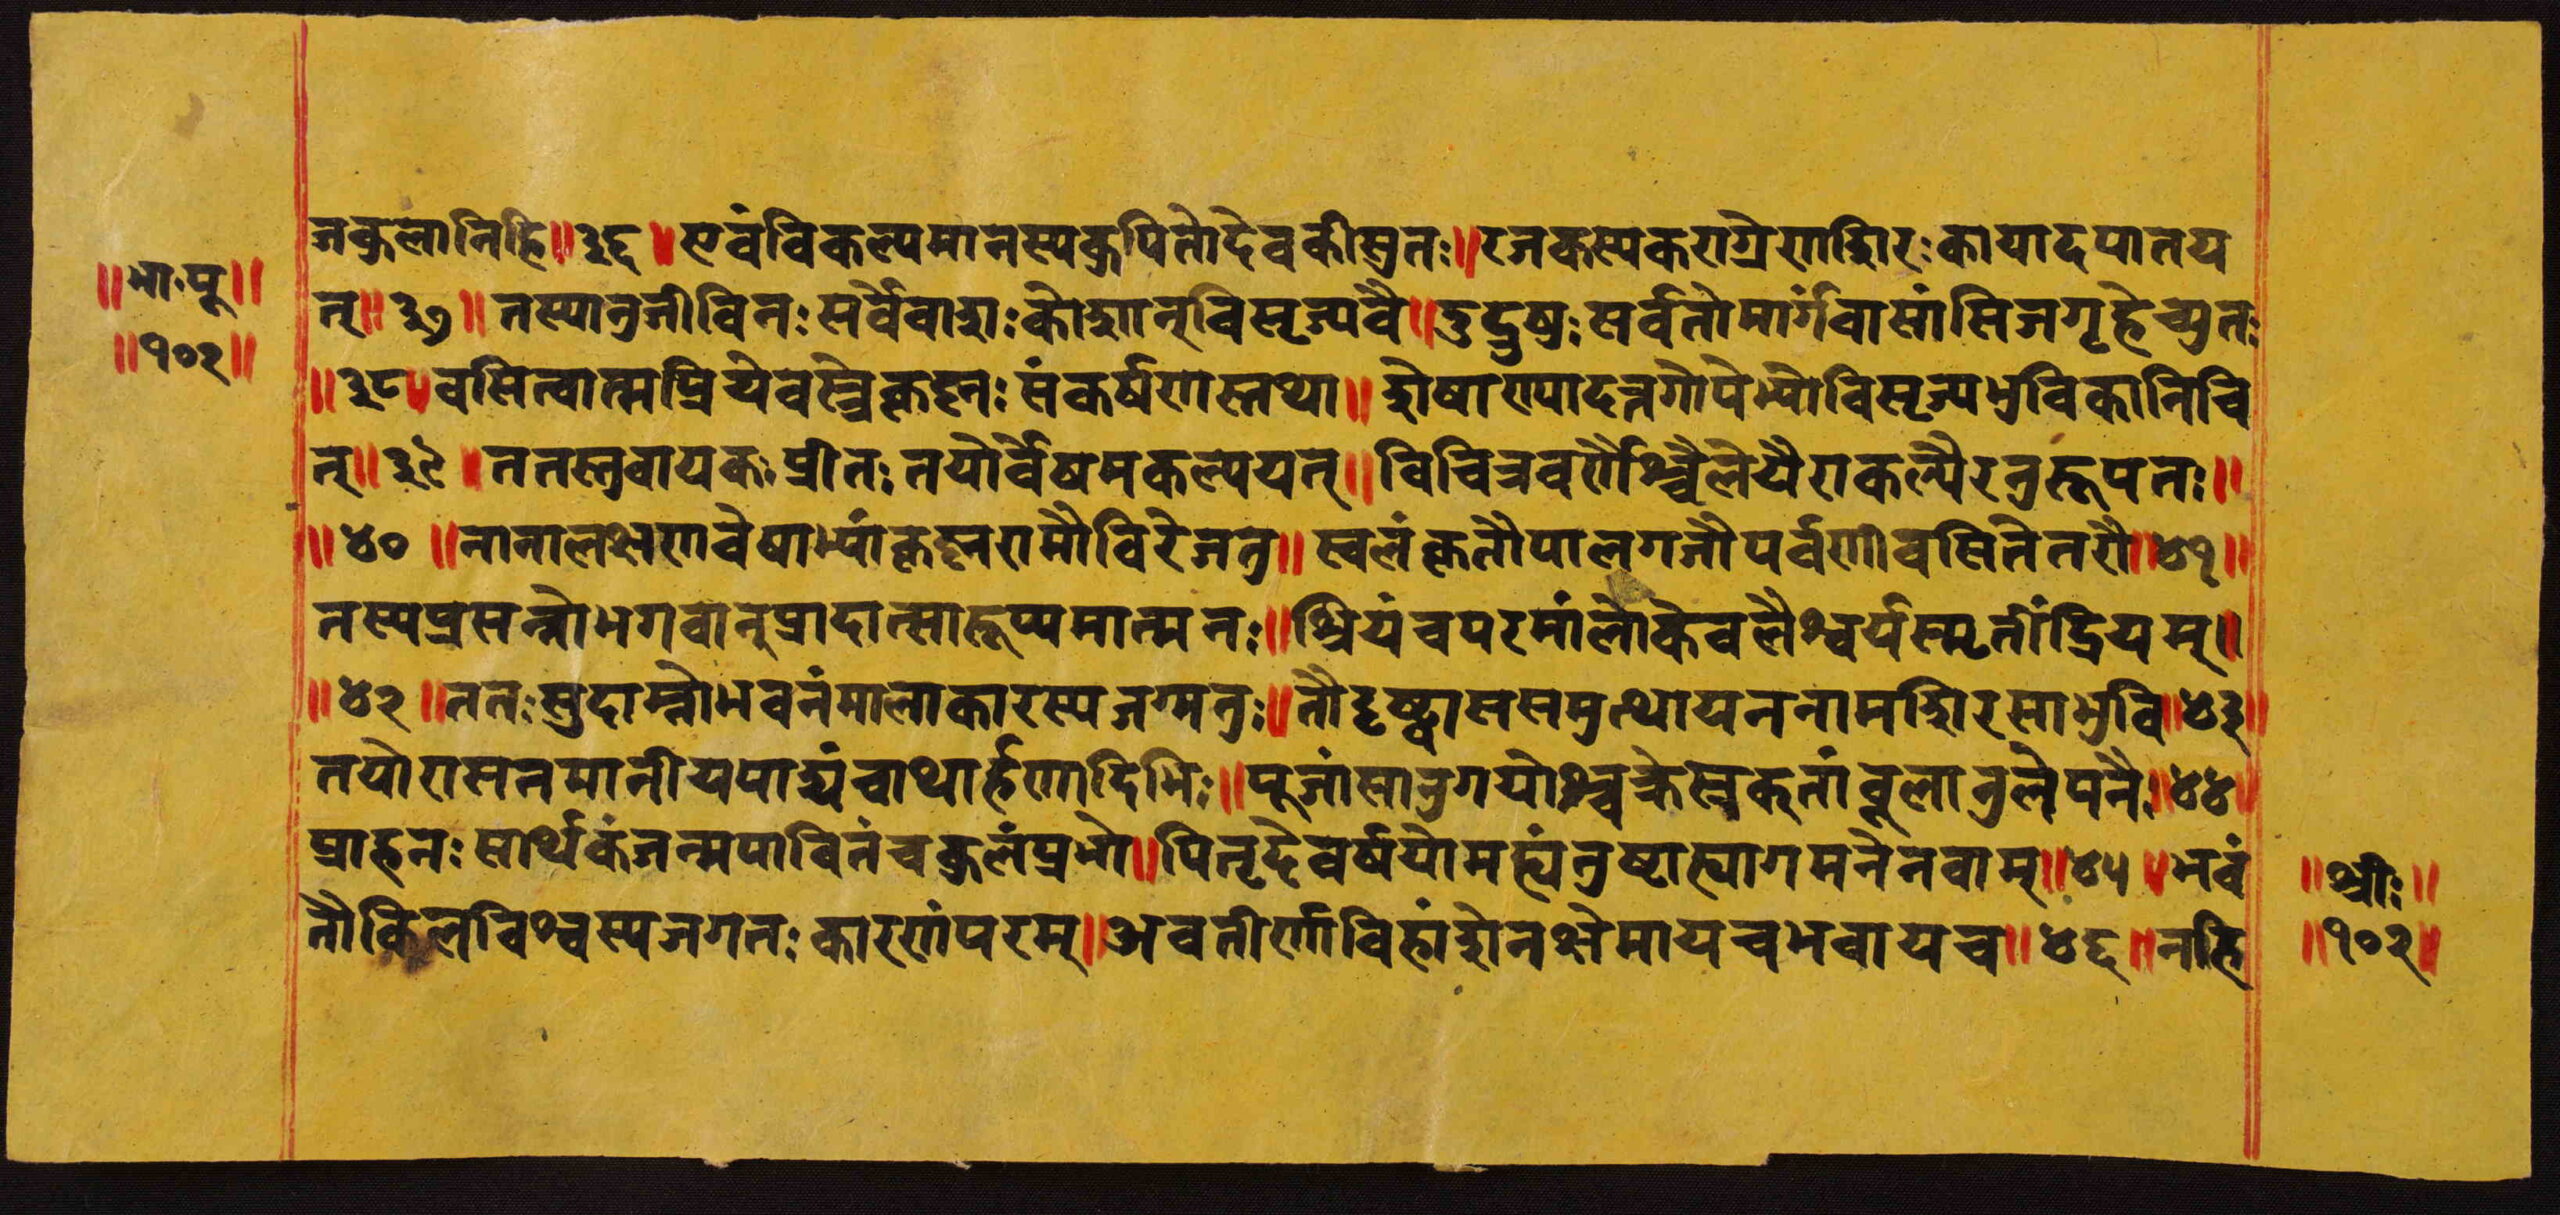 ॥भा.पू॥
॥१०२॥
जकुलानिहि॥३६॥एवंविकल्पमानस्यकुपितोदेवकीसुतः॥रजकस्यकराग्रेणशिरःकायादपातय
त्॥३७॥तस्यानुजीविनःसर्वेवाशःकोशान्विसृज्यवै॥दुद्रुवुःसर्वतोमार्गंवासांसिजगृहेच्युतः
॥३८॥वसित्वात्मप्रियेवस्त्रेकृष्णःसंकर्षणस्तथा॥शेषाण्यादत्तगोपेभ्योविसृज्यभुविकानिचि
त्॥३९॥ततस्तुवायकःप्रीतःतयोर्वेषमकल्पयत्॥विचित्रवर्णैश्चैलेयैराकल्पैरनुरूपतः॥
॥४०॥नानालक्षणवेषाभ्यांकृष्णरामौविरेजतु॥स्वलंकृतौपालगजौपर्वणीवसितेतरौ॥४१॥
तस्यप्रसन्नोभगवान्प्रादात्सारूप्यमात्मनः॥श्रियंचपरमांलोकेवलैश्वर्यस्मृतींद्रियम्॥
॥४२॥ततःसुदाम्नोभवनंमालाकारस्यजग्मतुः॥तौदृष्ट्वाससमुत्थायननामशिरसाभुवि॥४३॥
तयोरासनमानीयपाद्यंचाथार्हणादिभिः॥पूजांसानुगयोश्चक्रेस्रक्तांवूलानुलेपनैः॥४४॥
प्राहनःसार्थकंजन्मपावितंचकुलंप्रभो॥पितृदेवर्षयोमह्यंतुष्टाह्यागमनेनवाम्॥४५॥भवं
तौकिलविश्वस्यजगतःकारणंपरम्॥अवतीर्णाविहांशेनक्षेमायचभवायच॥४६॥नहि
॥श्रीः॥
॥१०२॥